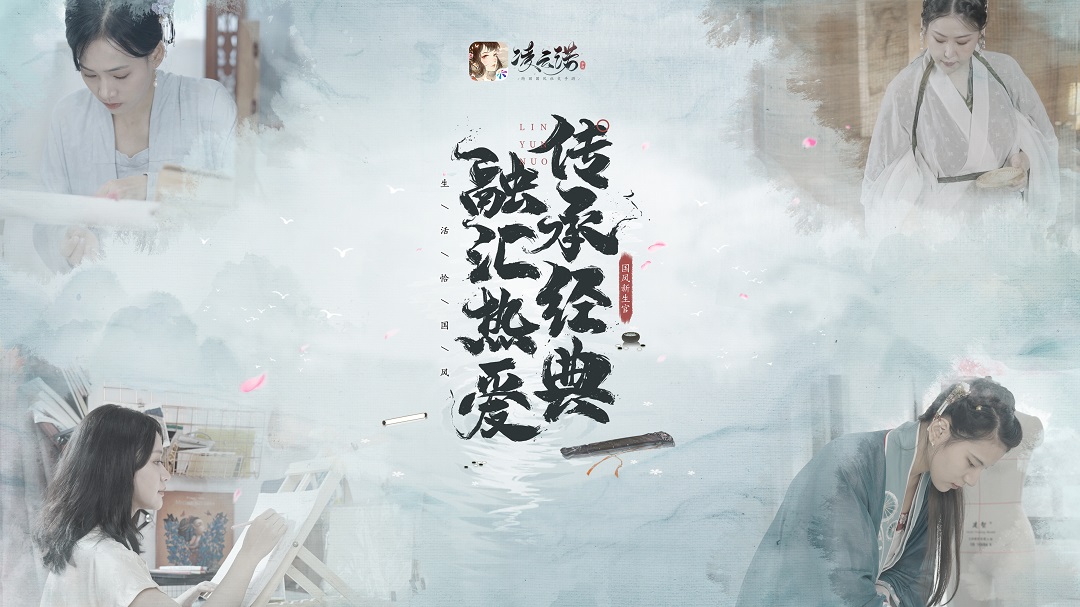 凌云诺
LIN
YUN
NUO
传承经典
融汇热爱
生活恰国风
国风新生官